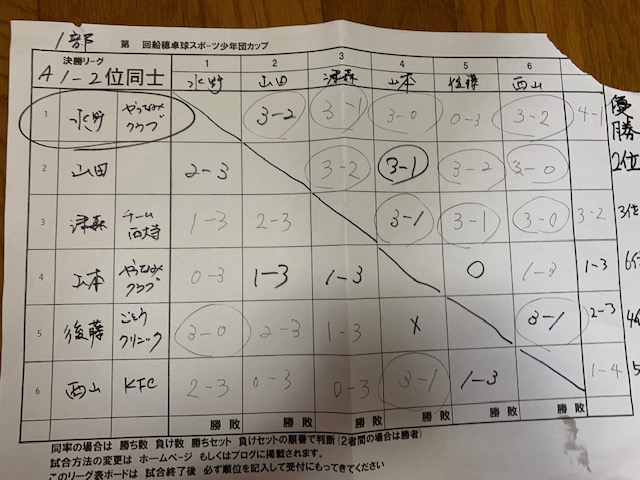 1部 第 回船穂卓球スポーツ少年団カップ
決勝リーグ 1 2 3 4 5 6
A 1-2位同士 水野 山田 津森 山本 後藤 西山
1 水野 やつなみクラブ 3-2 3-1 3-0 0-3 3-2 4-1 優勝
2 山田 2-3 3-2 3-1 3-2 3-0 2位
3 津森 チーム西大寺 1-3 2-3 3-1 3-1 3-0 3-2 3位
4 山本 やつなみクラブ 0-3 1-3 1-3 0 1-3 1-3
5 後藤 ごとうクリニック 3-0 2-3 1-3 x 3-1 2-3
6 西山 KFC 2-3 0-3 0-3 3-1 1-3 1-4 5
勝 敗 勝 敗 勝 敗 勝 敗 勝 敗 勝 敗
同率の場合は 勝ち数 負け数 勝ちセット 負けセットの順番で判断(2者間の場合は勝者)
試合方法の変更は ホームページ もしくはブログに掲載されます。
このリーグ表ボードは 試合終了後 必ず順位を記入して受付にもってきてください